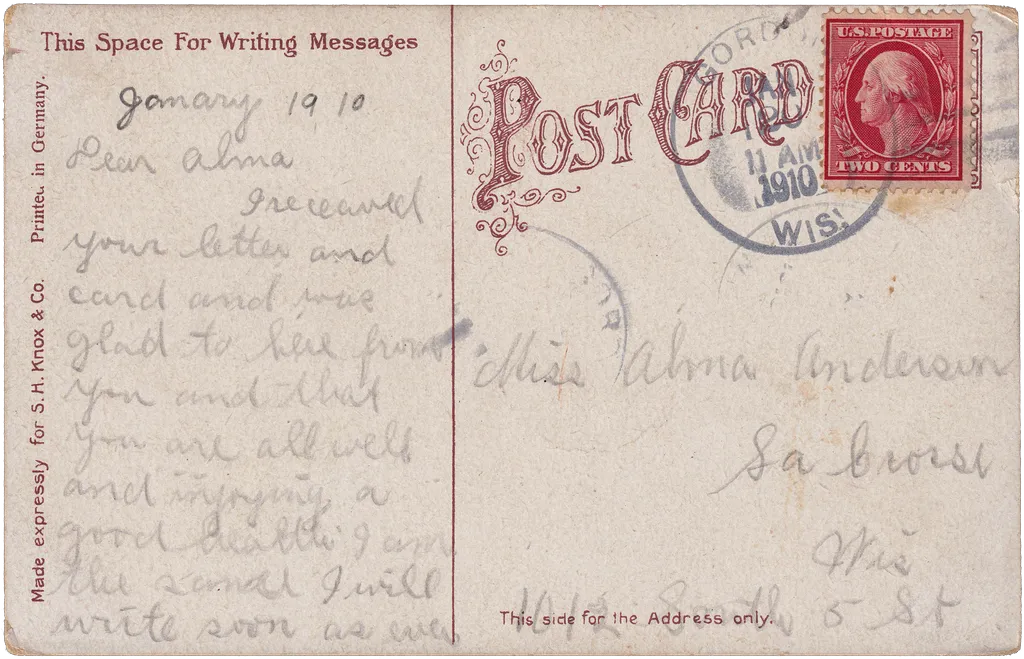 This Space For Writing Messages
January 19 10
Dear Alma
I receaved
your letter and
card and was
glad to here from
you and that
you are all well
and injoying a
good health I am
the same I will
write soon as ever
Made expressly for S. H. Knox & Co. Printed in Germany.
POST CARD
JAN
11 AM
1910
WIS.
U.S. POSTAGE
TWO CENTS
Miss Alma Anderson
La Crosse
Wis
1012 South 5 St
This side for the Address only.